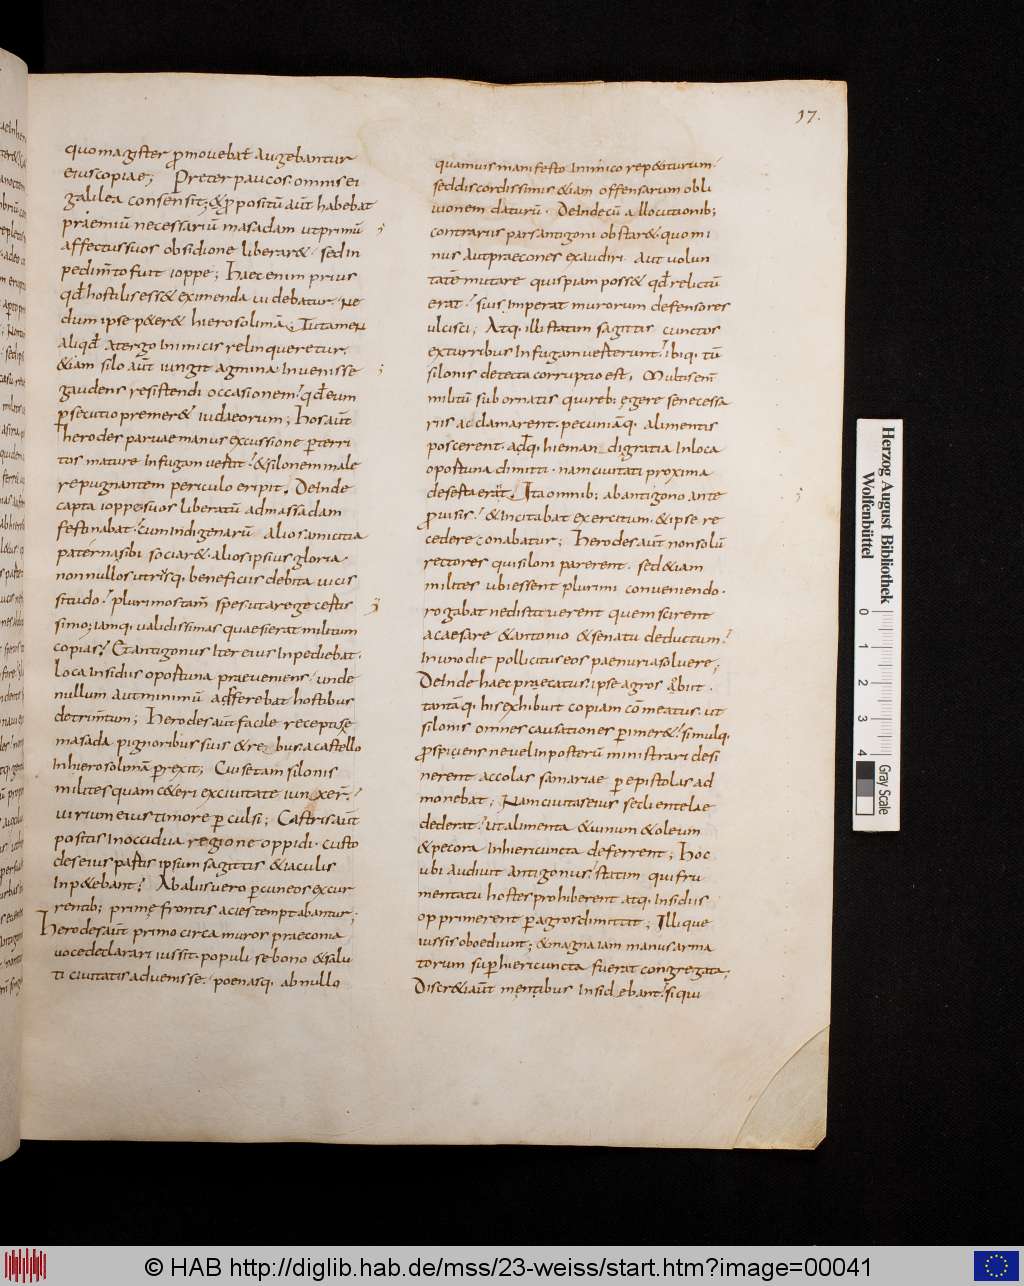 17.
quo magister ꝓmouebat̄ Augebantur
eius copiae; Preter paucos. omnis ei
galilea consensit; & ꝓpositū aūt habebat
praemiū necessariū masadam ut primū
affectus suos obsidione liberar&. sed in
pedim̄to fuit ioppe; Haec enim prius
qd̄ hostilis ess& eximenda uidebatur. Ne
dum ipse p&er& hierosolimā;
aliqd̄ Atergo Inimicis relinqueretur.
&iam silo aūt iungit agmina Inuenisse
gaudens resistendi occasionem. qd̄ eum
ꝑsecutio premer& iudaeorum; Hos aūt
herodes parua e manus excussione ꝑterri
tos mature Infugam uertit. & silonem male
repugnantem periculo eripit. Deinde
capta ioppe suos liberatū ad massadam
festinabat. Cum Indigenarū Alios amicitia
paterna sibi sociar&. alios ipsius gloria.
nonnullos utrisq. beneficiis debita uicis
situdo. plurimos tam̄ spes ut a rege certis
simo; iamq. ualidissimas quaesierat militum
copias; Et antigonus Iter eius Inpediebat.
loca Insidiis oportuna praeueniens. unde
nullum aut minimū adferebat hostibus
detrim̄tum; Herodes aūt facile receptis ex
masada pignoribus suis & rebus. a castello
Inhierosolȳmā ꝑrexit; Cui se tam silonis
milites quam c&eri exciuitate iunxer̄.
uirium eius timore ꝑculsi; Castris aūt
positis Inoccidua regione oppidi. custo
des eius partis ipsum sagittis & iaculis
Inp&ebant. Ab aliis uero ꝑcuneos excur
rentib; prime frontis acies temptabantur;
Herodes aūt primo circa muros praeconia
uoce declarari iussit. populi se bono & salu
ti ciuitatis aduenisse. poenasq. ab nullo
quamuis manifesto Inimico rep&iturum.
sed discordissimis &iam offensarum obli
uionem daturū. Deinde cū allocutionib;
contrariis pars antigoni obstar&. quo mi
nus Aut praecones exaudiri. Aut uolun
tatē mutare quispiam poss& qd̄ relictū
erat. suis Imperat murorum defensores
ulcisci; Atq. illi statim sagittis cunctos
exturribus Infugam uerterunt. ibiq. tū
silonis detecta corruptio est; Multis em̄
militū subornatis qui reb; egere se necessa
riis acclamarent. pecuniāq. alimentis
poscerent. adq̄. hiemandi gratia Inloca
oportuna dimitti. nam ciuitati proxima
deserta erat. Ita omnib; ab antigono ante
ꝓuisis. & Incitabat exercitum. & ipse re
cedere conabatur; Herodes aūt non solū
rectores qui siloni parerent. sed &iam
milites ubi essent plurimi conueniendo.
rogabat ne distituerent quem scirent
a caesare & antonio & senatu deductum.
In uno die pollicitus eos paenuria soluere;
Deinde haec praecatus. ipse agros abiit.
tantāq. his exhibuit copiam cōmeatus. ut
silonis omnes causationes ꝑimer&. simulq.
ꝓspiciens neuel Inposterū ministrari desi
nerent accolas samariae ꝑepistolas ad
monebat; Nam ciuitas eius se clientelae
dederat. ut alimenta & uinum & oleum
& pecora Inhiericuncta deferrent; Hoc
ubi audiuit Antigonus. statim qui fru
mentatū hostes prohiberent atq. Insidiis
opprimerent ꝑagros dimittit; Illi que
iussis oboediunt; & magna iam manus arma
torum suꝑhiericuncta fuerat congregata;
Discr&i aūt mentibus Insidebant. si qui
Herzog August Bibliothek
Wolfenbüttel
0 1 2 3 4
Gray Scale
© HAB http://diglib.hab.de/mss/23-weiss/start.htm?image=00041